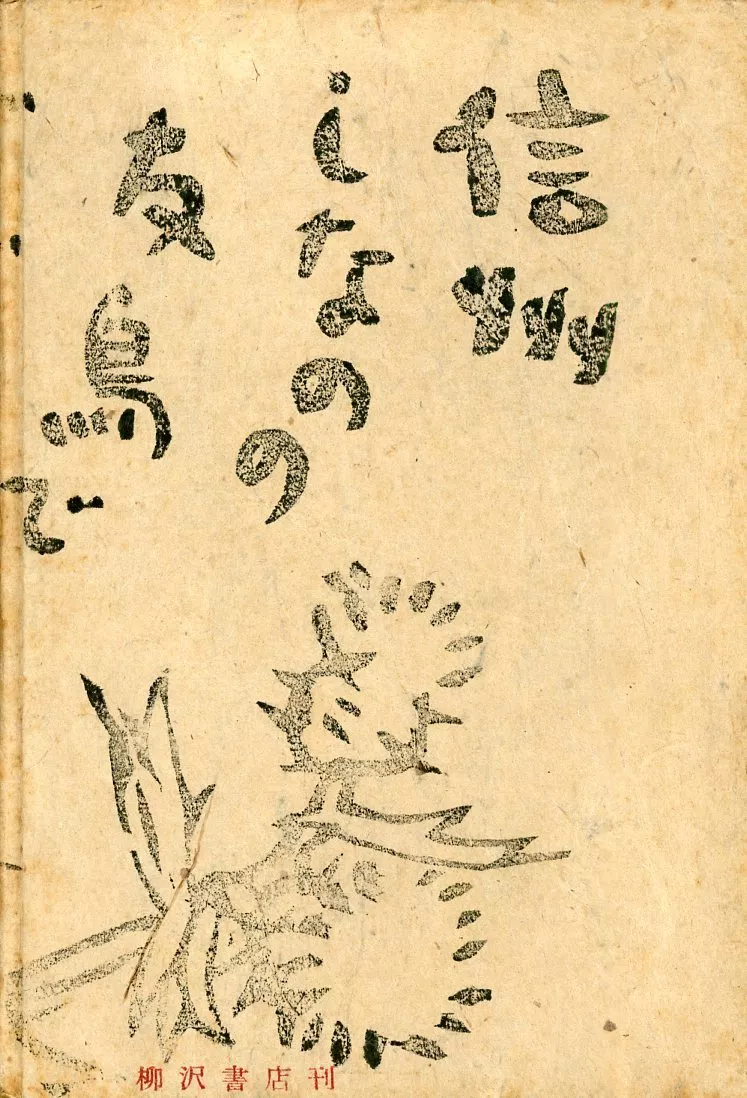 信州
しなのの
友鳥で
柳沢書店刊